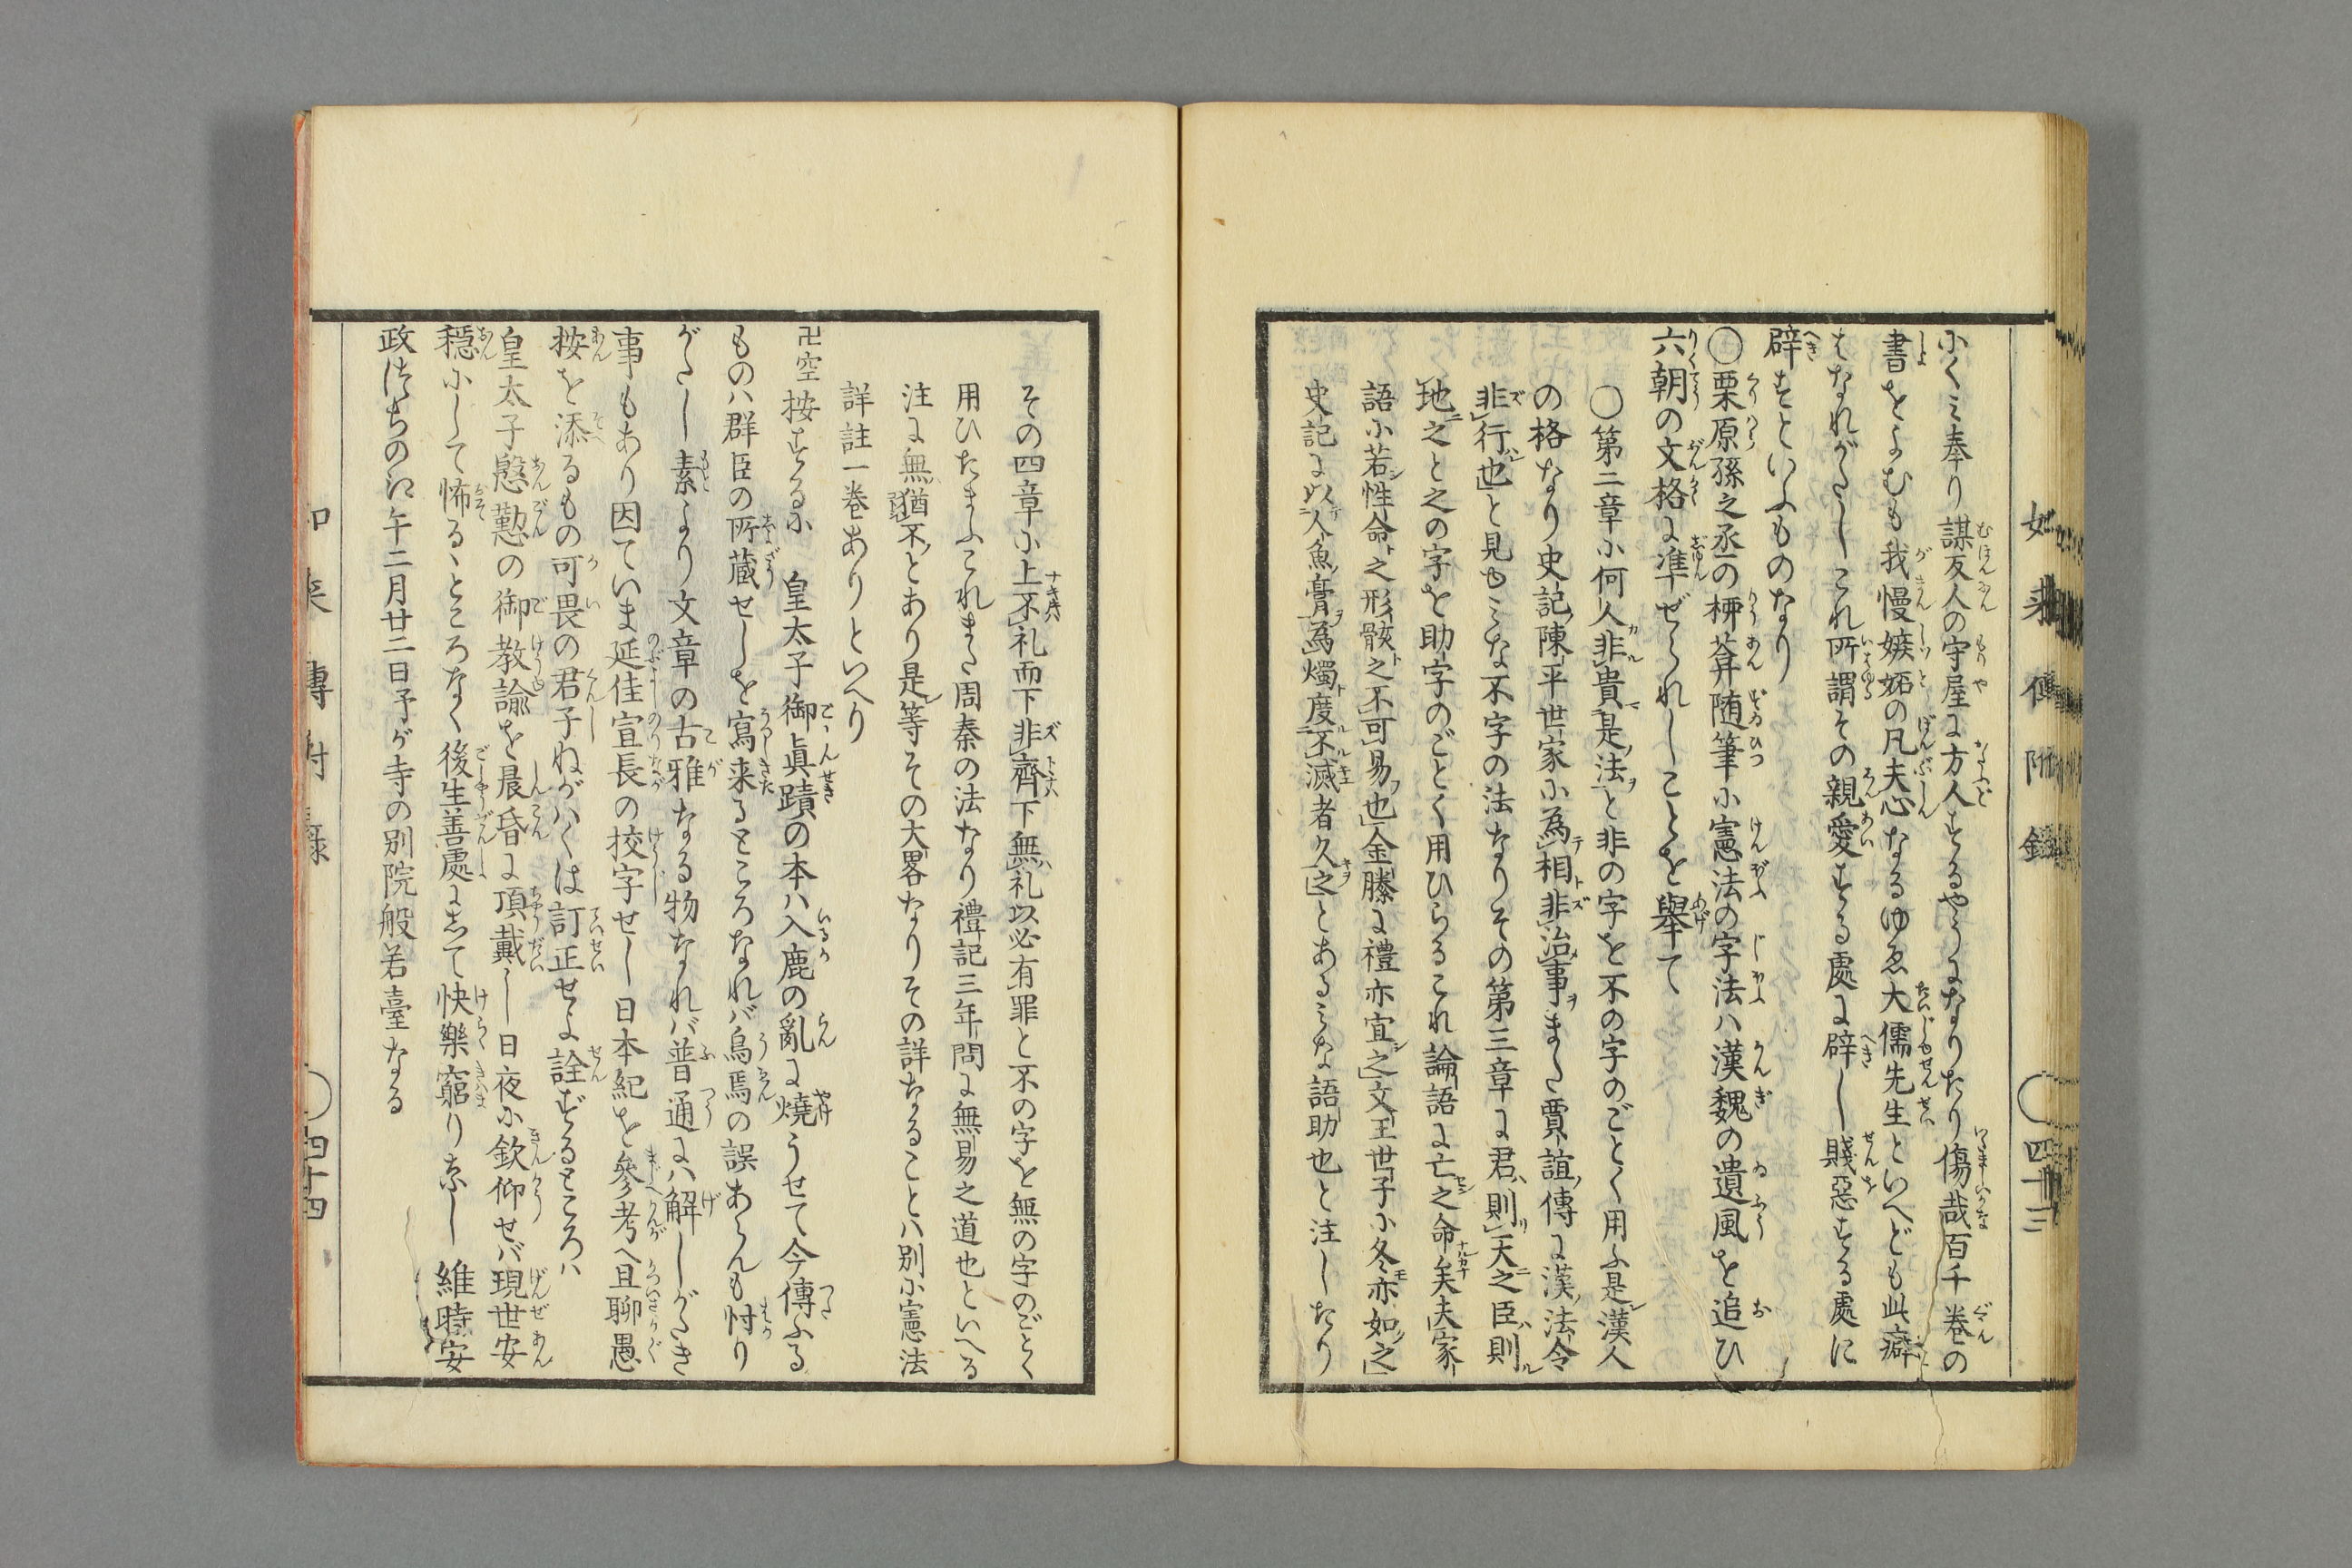 如来傳附録
四十三
にくミ奉り謀反人の守屋に方人するやうになりたり傷哉百千巻の
書をよむも我慢嫉妬の凡夫心なるゆゑ大儒先生といへども此癖
はなれがたしこれ所謂その親愛する處に辟し賤惡する處に
辟すといふものなり
〇栗原孫之丞の柳菴随筆に憲法の字法ハ漢魏の遺風を追ひ
六朝の文格に準ぜられしことを擧て
〇第二章に何人非貴是法と非の字を不の字のごとく用ふ是漢人
の格なり史記陳平世家に為相非治事また賈誼傳に漢法令
非行也と見ゆミな不字の法なりその第三章に君則天之臣則
地之と之の字を助字のごとく用ひらるこれ論語に亡之命矣夫家
語に若性命之形骸之不可易也金縢に禮亦宜之文王世子に冬亦如之
史記に以人魚膏為燭度不滅者久之とあるミな語助也と注したり
その四章に上不礼而下非齊下無礼以必有罪と不の字を無の字のごとく
用ひたまふこれまた周秦の法なり禮記三年問に無易之道也といへる
注に無猶不とあり是等その大畧なりその詳なることハ別に憲法
詳註一巻ありといへり
卍空按するに 皇太子御眞蹟の本ハ入鹿の亂に燒うせて今傳ふる
ものハ群臣の所蔵せしを寫来るところなれバ烏焉の誤あらんも忖り
がたし素より文章の古雅なる物なれバ普通にハ解しがたき
事もあり因ていま延佳宣長の挍字せし日本紀を參考へ且聊愚
按を添るもの可畏の君子ねがハくは訂正せよ詮ずるところハ
皇太子慇懃の御教諭を晨昏に頂戴し日夜に欽仰せバ現世安
穏にして怖るゝところなく後生善處にして快樂窮りなし 維時安
政つちのえ午二月廿二日予が寺の別院般若臺なる
如来傳附録
四十四